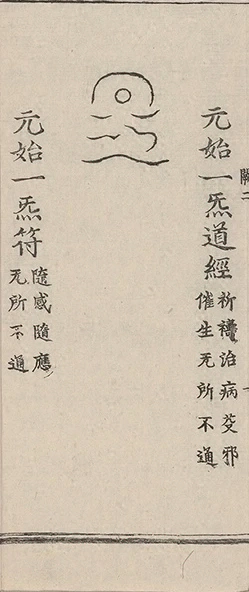 元始一炁道經
祈禱治病茇邪
催生无所不通
元始一炁符
隨感隨應
无所不通